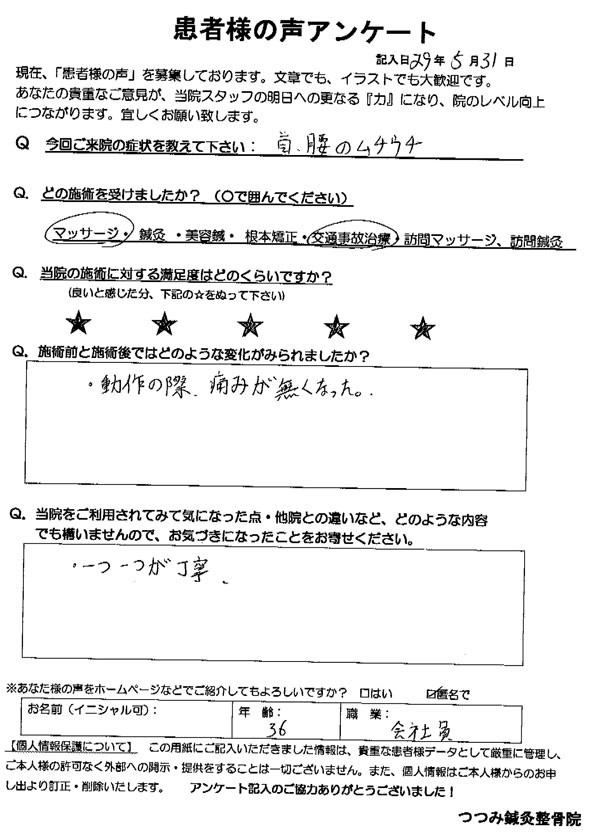 患者様の声アンケート
記入日29年5月31日
現在、「患者様の声」を募集しております。文章でも、イラストでも大歓迎です。
あなたの貴重なご意見が、当院スタッフの明日への更なる『力』になり、院のレベル向上
につながります。宜しくお願い致します。
Q 今回ご来院の症状を教えて下さい： 首、腰のムチウチ
Q. どの施術を受けましたか？（○で囲んでください）
マッサージ・ 鍼灸 ・美容鍼・ 根本矯正・交通事故治療・訪問マッサージ、訪問鍼灸
Q. 当院の施術に対する満足度はどのくらいですか？
(良いと感じた分、下記の☆をぬって下さい)
★ ★ ★ ★ ★
Q. 施術前と施術後ではどのような変化がみられましたか？
・動作の際、痛みが無くなった。
Q. 当院をご利用されてみて気になった点・他院との違いなど、どのような内容
でも構いませんので、お気づきになったことをお寄せください。
・一つ一つが丁寧、
※あなた様の声をホームページなどでご紹介してもよろしいですか？ □はい ☑匿名で
お名前（イニシャル可）： 年 齢： 職 業：
36 会社員
【個人情報保護について】 この用紙にご記入いただきました情報は、貴重な患者様データとして厳重に管理し、
ご本人様の許可なく外部への開示・提供をすることは一切ございません。また、個人情報はご本人様からのお申
し出より訂正・削除いたします。 アンケート記入のご協力ありがとうございました！
つつみ鍼灸整骨院